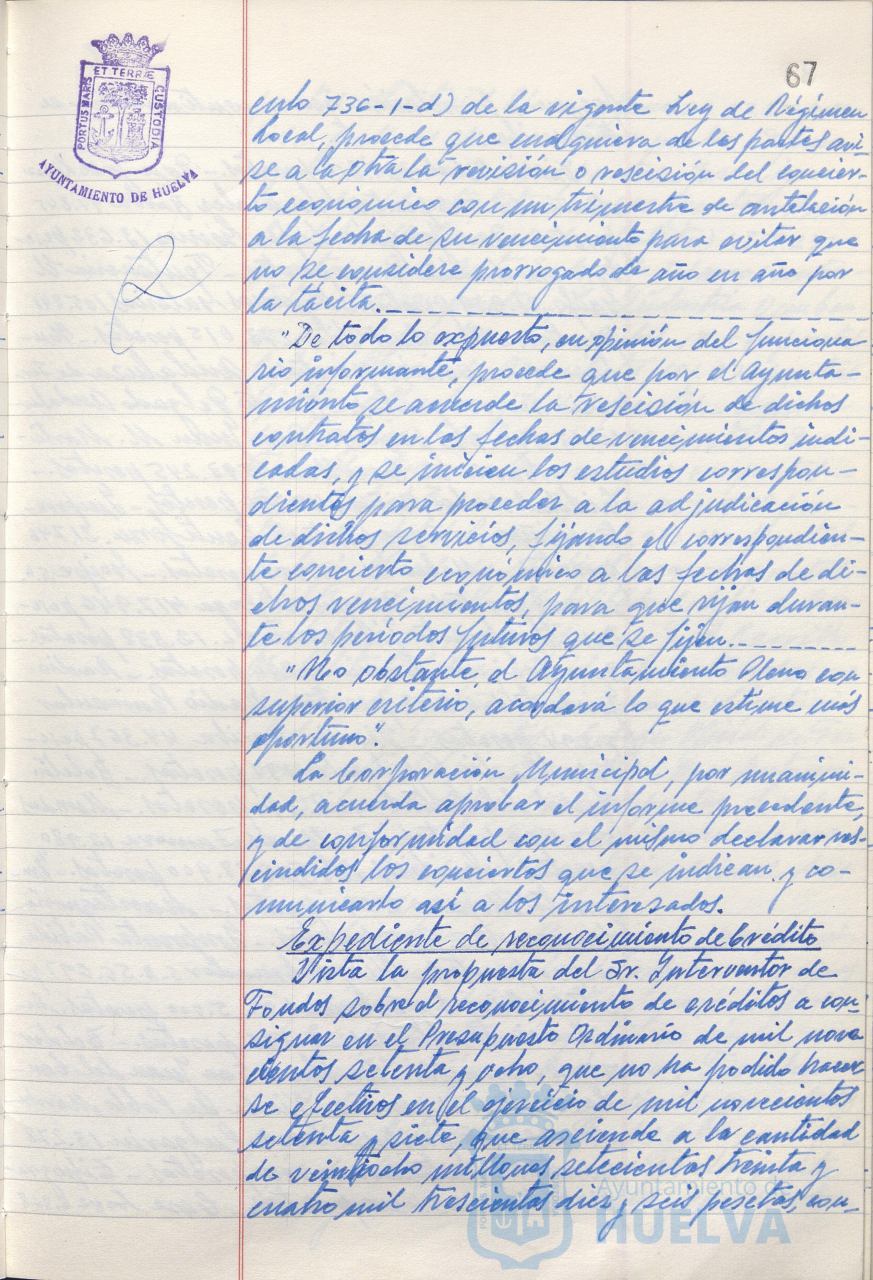 67
PORTUS MARIS ET TERRÆ CUSTODIA
AYUNTAMIENTO DE HUELVA
culo 736-1-d) de la vigente Ley de Régimen
Local, procede que cualquiera de las partes avi-
se a la otra la revisión o rescisión del concier-
to económico con un trimestre de antelación
a la fecha de su vencimiento para evitar que
no se considere prorrogado de año en año por
la tácita.
"De todo lo expuesto, en opinión del funciona
rio informante, procede que por el Ayunta-
miento se acuerde la rescisión de dichos
contratos en las fechas de vencimientos indi-
cadas, y se inicien los estudios correspon-
dientes para proceder a la adjudicación
de dichos servicios, fijando el correspondien-
te concierto económico a las fechas de di-
chos vencimientos, para que rijan duran-
te los períodos futuros que se fijen.
"No obstante, el Ayuntamiento Pleno con
superior criterio, acordará lo que estime más
oportuno".
La Corporación Municipal, por unanimi-
dad, acuerda aprobar el informe precedente,
y de conformidad con el mismo declarar res-
cindidos los conciertos que se indican y co-
municarlo así a los interesados.
Expediente de reconocimiento de Crédito
Vista la propuesta del Sr. Interventor de
Fondos sobre el reconocimiento de créditos a con-
signar en el Presupuesto Ordinario de mil nove
cientos setenta y ocho, que no ha podido hacer
se efectivos en el ejercicio de mil novecientos
setenta y siete, que asciende a la cantidad
de veintiocho millones setecientas treinta y
cuatro mil trescientas diez y seis pesetas, con-
Ayuntamiento de
HUELVA